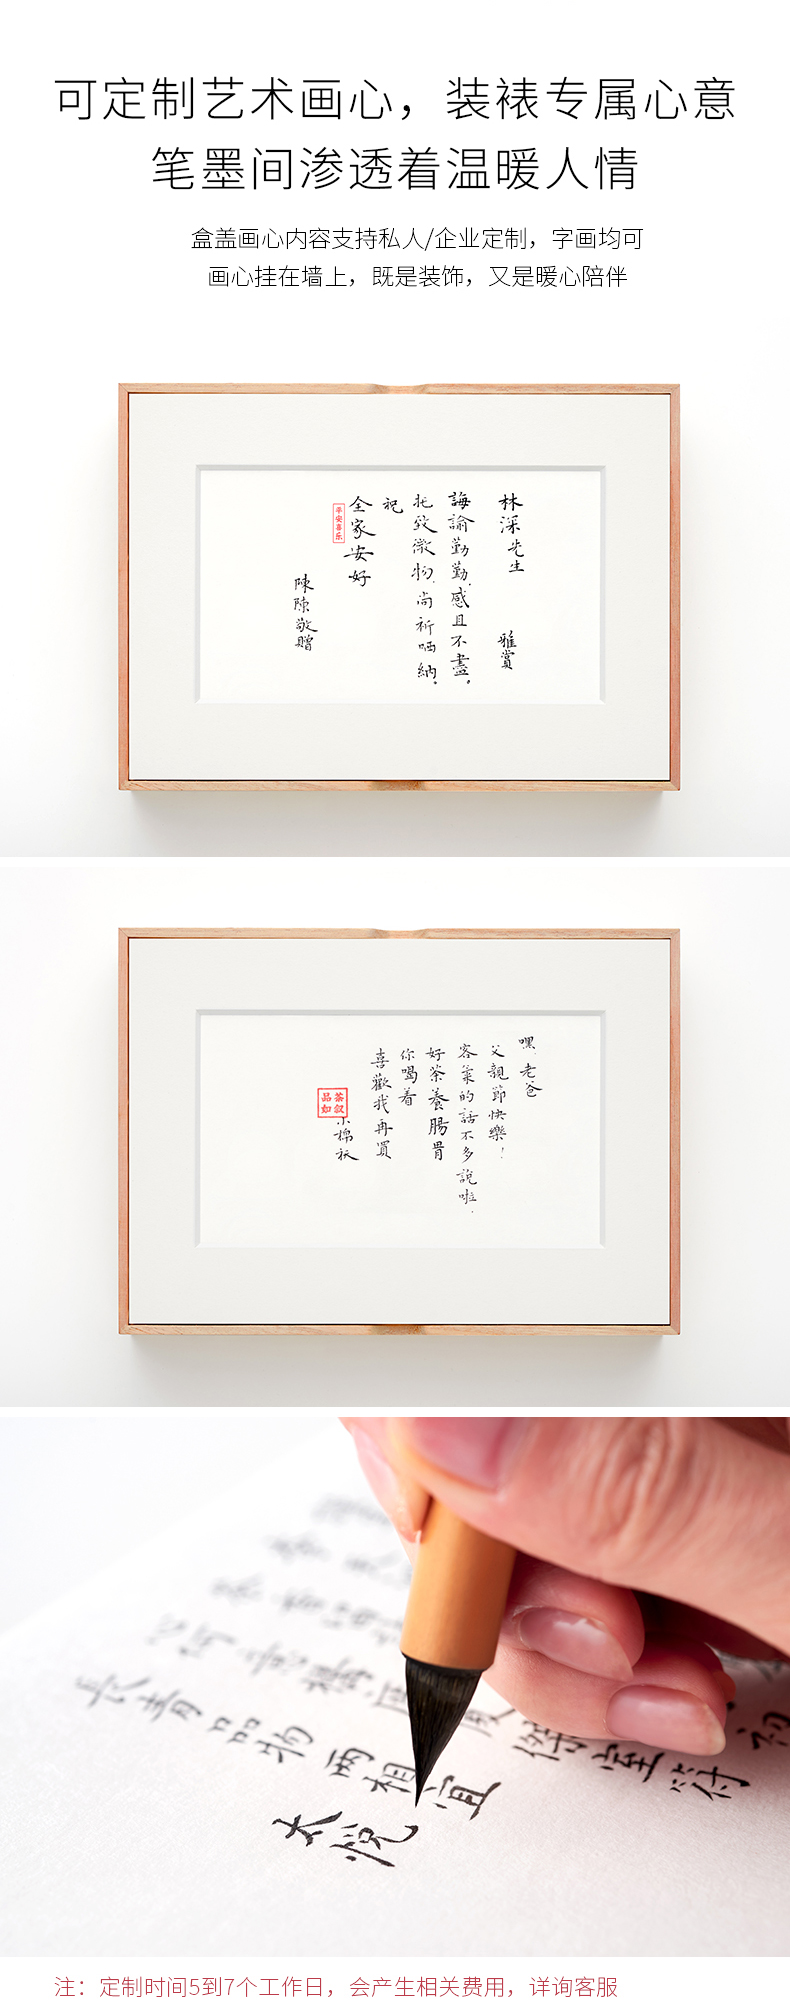 可定制艺术画心，装裱专属心意
笔墨间渗透着温暖人情
盒盖画心内容支持私人/企业定制，字画均可
画心挂在墙上，既是装饰，又是暖心陪伴
林深先生 雅賞
誨諭勤勤，感且不盡，
托致微物，尚祈哂納。
祝
全家安好
平安喜乐
陳陳敬贈
嘿，老爸
父親節快樂！
客氣的話不多說啦，
好茶養腸胃
你喝着
喜歡我再買
小棉袄
茶叙
品如
長青品物两相宜
太悦
注：定制时间5到7个工作日，会产生相关费用，详询客服